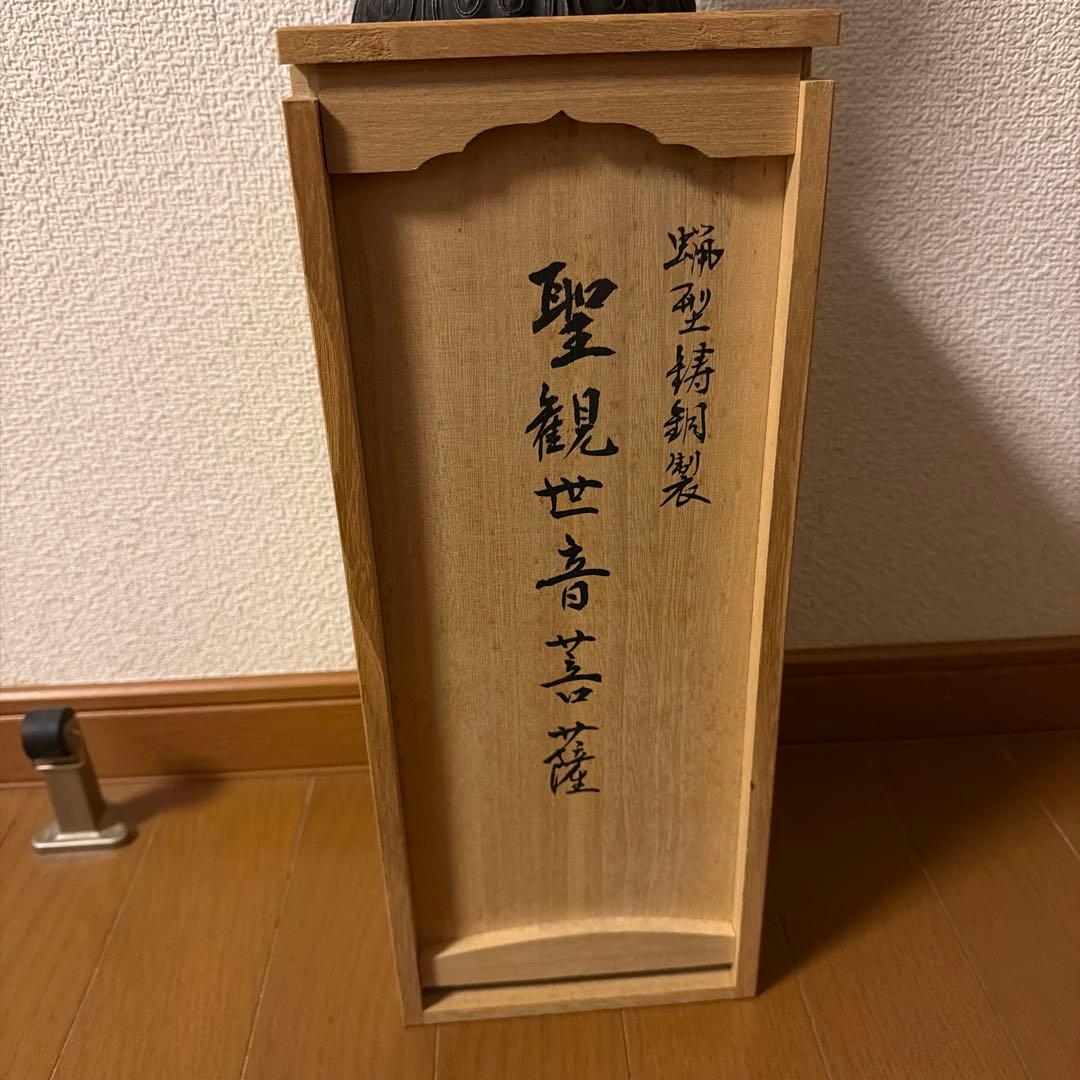 蝋型鋳銅製
聖観世音菩薩